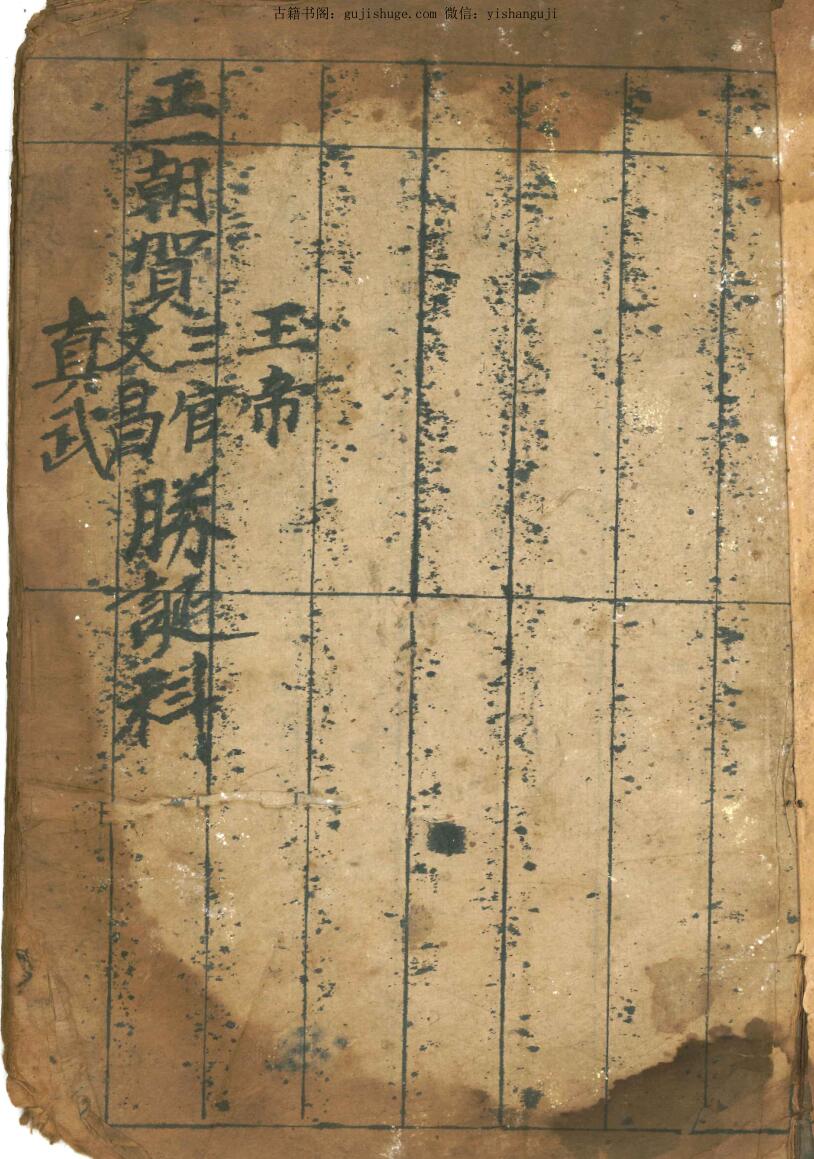 古籍书阁: gujishuge.com 微信: yishanguji
正一朝賀
玉帝
三官
文昌
真武
勝誕科